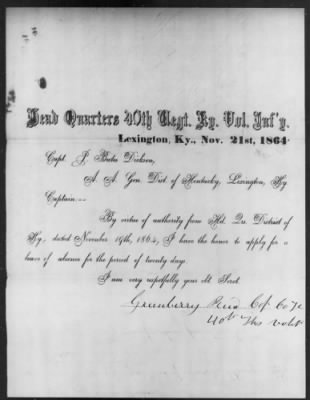 Head Quarters 40th Regt. Ky. Vol. Inf'y.
Lexington, Ky., Nov. 21st, 1864
Capt. J. Bates Dickson,
A. A. Gen. Dist. of Kentucky, Lexington, Ky
Captain:--
By virtue of authority from Hd. Qrs. District of
Ky., dated November 19th, 1864, I have the honor to apply for a
leave of absence for the period of twenty days.
I am very respectfully your obt. Servt.
Greenberry Reid Co
40th Ky